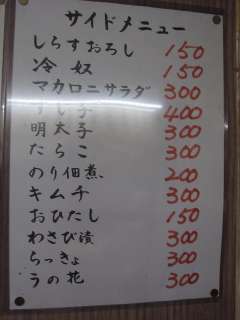 サイドメニュー
しらすおろし 150
冷奴 150
マカロニサラダ 300
すじ子 400
明太子 300
たらこ 300
のり佃煮 200
キムチ 300
おひたし 150
わさび漬 300
らっきょ 300
うの花 300